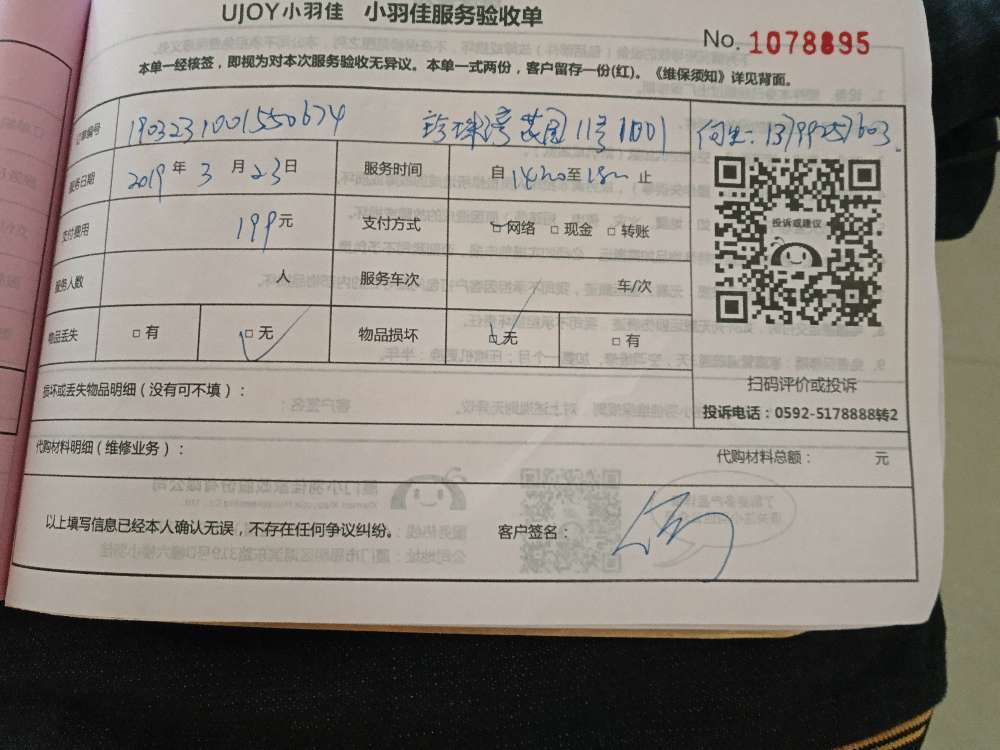 UJOY小羽佳 小羽佳服务验收单
No. 1078895
本单一经核签，即视为对本次服务验收无异议。本单一式两份，客户留存一份(红)。《维保须知》详见背面。
订单编号 1903231001550674 珍珠湾花园11号1001 何生：13799257603
服务日期 2019 年 3 月 23 日 服务时间 自 至 止
支付费用 199 元 支付方式 □网络 □现金 □转账
服务人数 人 服务车次 车/次
物品丢失 □有 □无 物品损坏 □无 □有
投诉或建议
扫码评价或投诉
投诉电话：0592-5178888转2
损坏或丢失物品明细（没有可不填）：
代购材料明细（维修业务）： 代购材料总额： 元
以上填写信息已经本人确认无误，不存在任何争议纠纷。 客户签名：